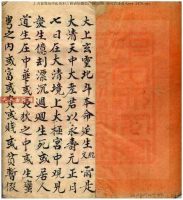 太上玄靈北斗本命延生
大清天中大聖老君以永壽元正月
七日在大清境上太極宮中觀見
衆生億刼漂沉週迴生死或居人
道生在中華或夷狄之中或生蠻
之內或富或貴或賤或貧暫假